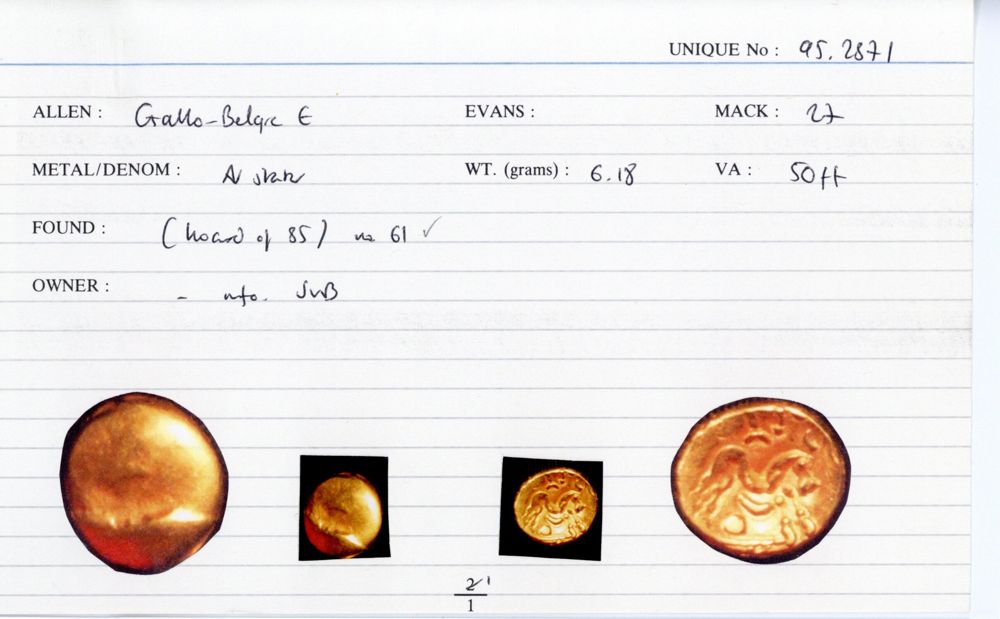 UNIQUE No : 95.2871
ALLEN : Gallo-Belgic E EVANS : MACK : 27
METAL/DENOM : AV stater WT. (grams) : 6.18 VA : 50ff
FOUND : (hoard of 85) no 61 ✓
OWNER : - info. JVB
2'
1